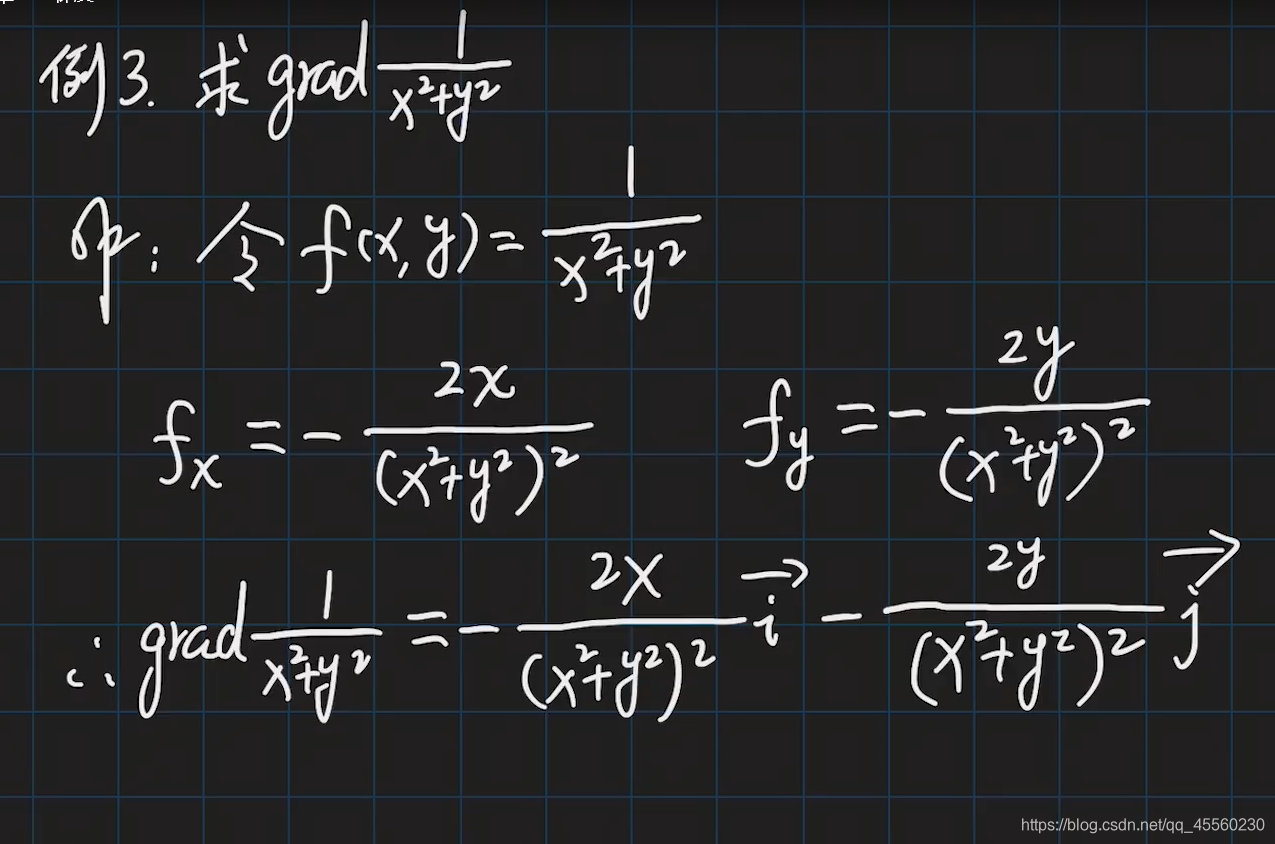 例3. 求 grad 1/(x²+y²)
解: 令 f(x,y) = 1/(x²+y²)
fₓ = - 2x/(x²+y²)² f_y = - 2y/(x²+y²)²
∴ grad 1/(x²+y²) = - 2x/(x²+y²)² i⃗ - 2y/(x²+y²)² j⃗
https://blog.csdn.net/qq_45560230